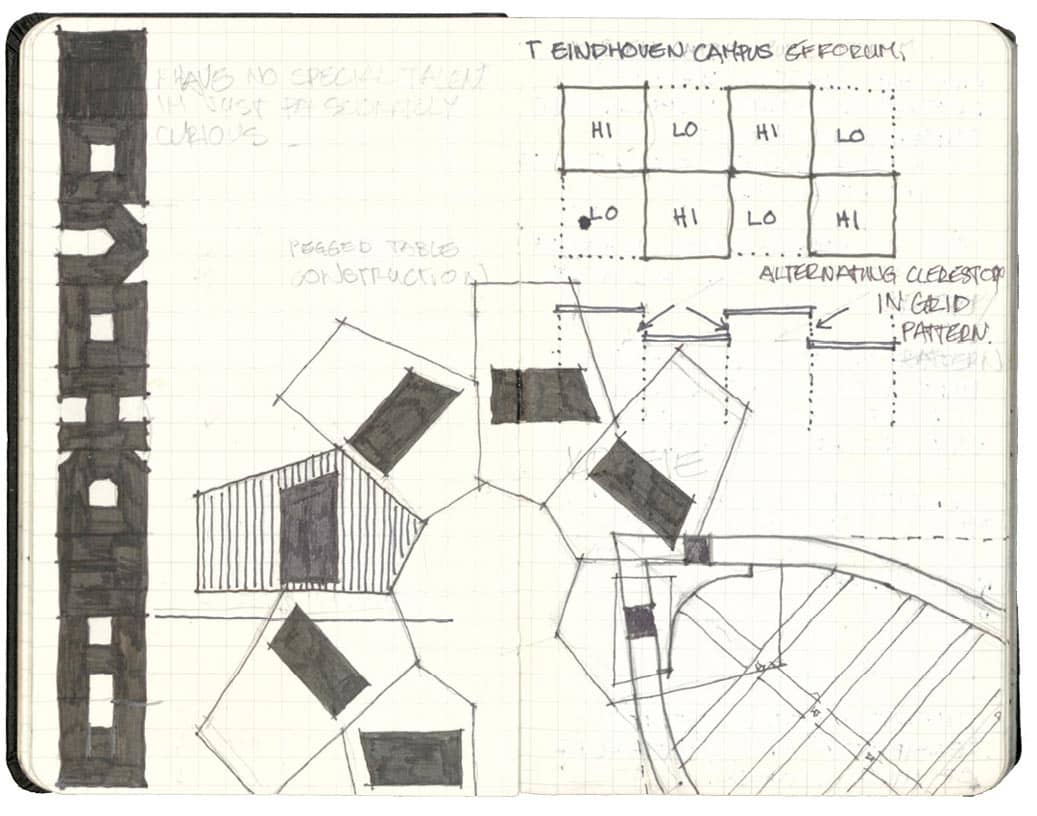 I HAVE NO SPECIAL TALENT
IM JUST
CURIOUS
PEGGED TABLE
CONSTRUCTION
T EINDHOVEN CAMPUS
HI LO HI LO
LO HI LO HI
ALTERNATING CLERESTORY
IN GRID
PATTERN.